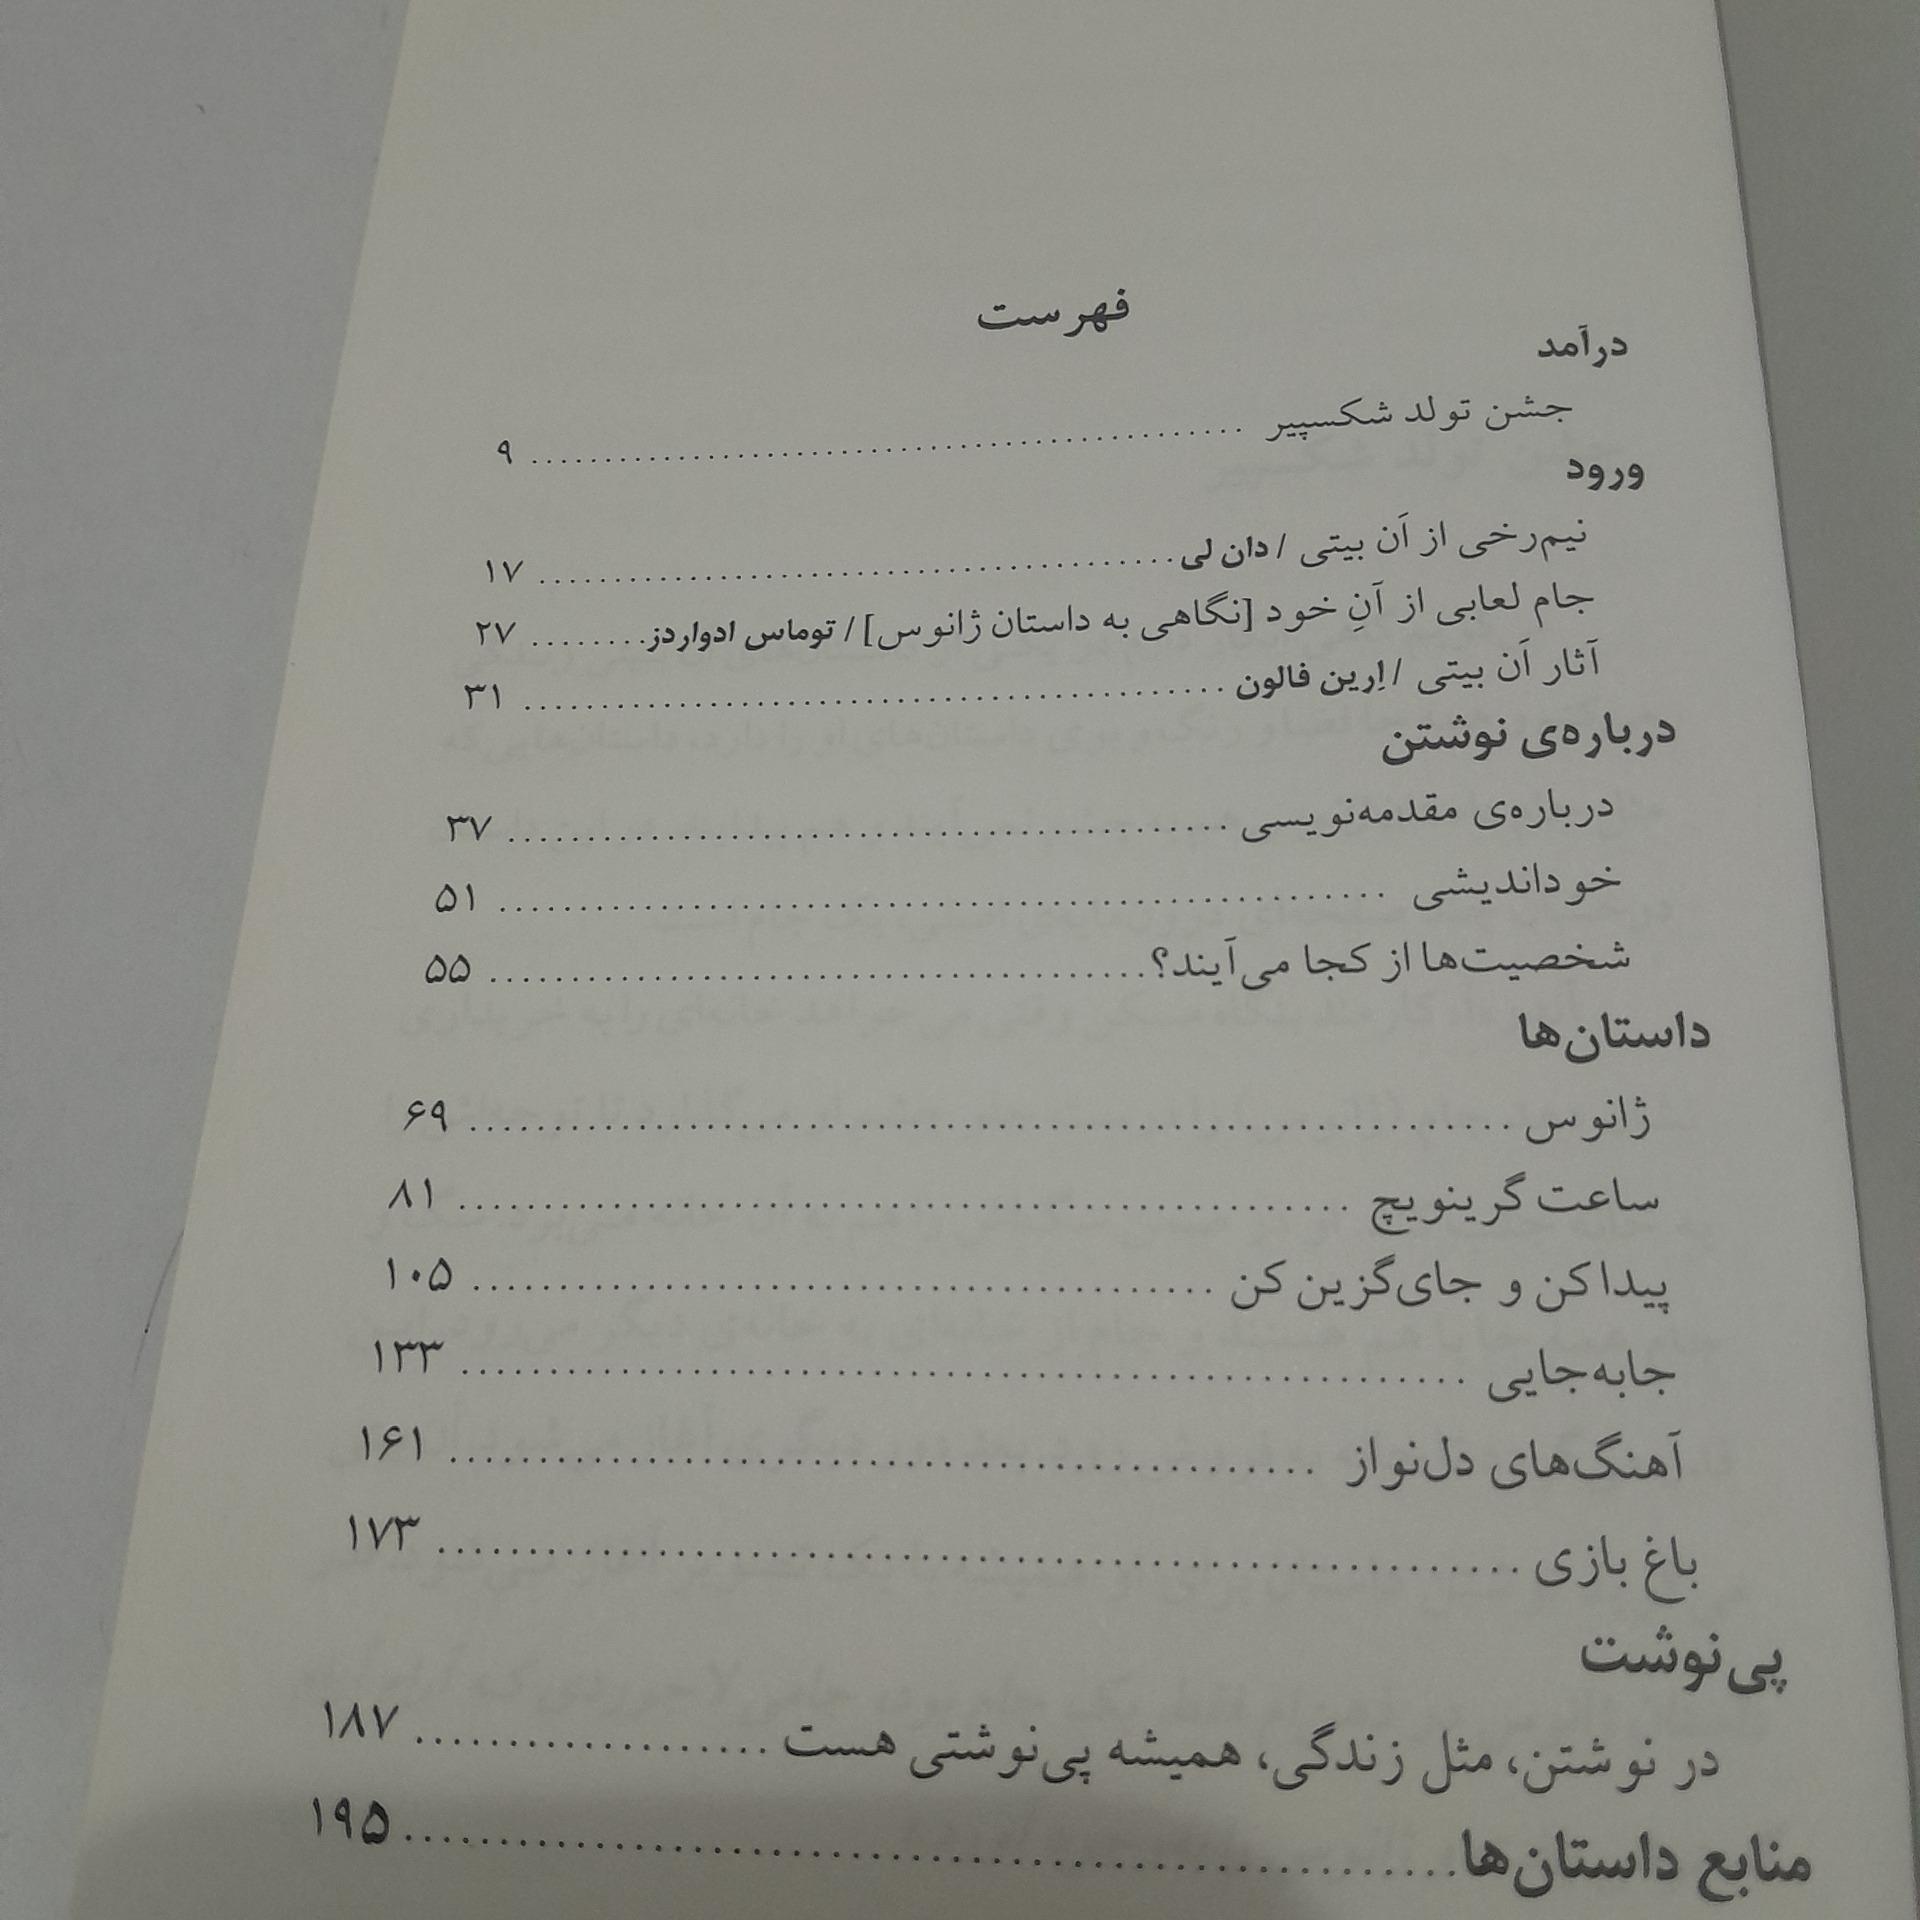 فهرست
درآمد
جشن تولد شکسپیر ........ ۹
ورود
نیم‌رخی از اَن بیتی / دان لی ........ ۱۷
جام لعابی از آنِ خود [نگاهی به داستان ژانوس] / توماس ادواردز ........ ۲۷
آثار اَن بیتی / اِرین فالون ........ ۳۱
درباره‌ی نوشتن
درباره‌ی مقدمه‌نویسی ........ ۳۷
خوداندیشی ........ ۵۱
شخصیت‌ها از کجا می‌آیند؟ ........ ۵۵
داستان‌ها
ژانوس ........ ۶۹
ساعت گرینویچ ........ ۸۱
پیدا کن و جای‌گزین کن ........ ۱۰۵
جابه‌جایی ........ ۱۳۳
آهنگ‌های دل‌نواز ........ ۱۶۱
باغ بازی ........ ۱۷۳
پی‌نوشت
در نوشتن، مثل زندگی، همیشه پی‌نوشتی هست ........ ۱۸۷
منابع داستان‌ها ........ ۱۹۵